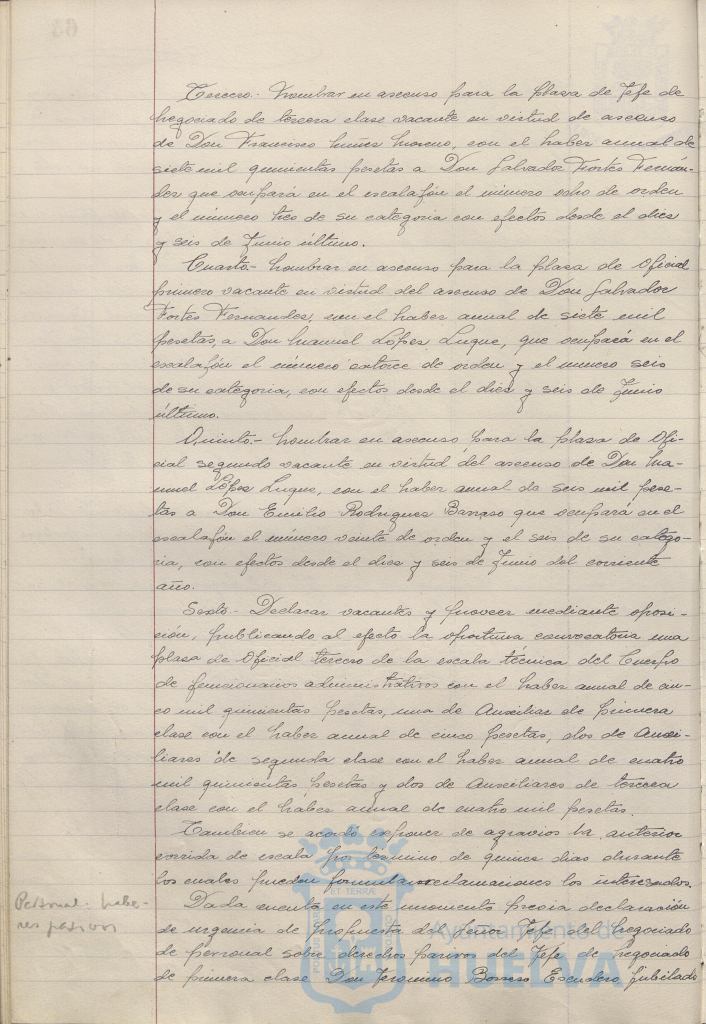 63
Tercero.- Nombrar en ascenso para la plaza de Jefe de
Negociado de tercera clase vacante en virtud de ascenso
de Don Francisco Núñez Moreno, con el haber anual de
siete mil quinientas pesetas a Don Salvador Fortes Fernán-
dez que ocupará en el escalafón el número ocho de orden
y el número tres de su categoría con efectos desde el diez
y seis de Junio último.
Cuarto.- Nombrar en ascenso para la plaza de Oficial
primero vacante en virtud del ascenso de Don Salvador
Fortes Fernandez, con el haber anual de siete mil
pesetas, a Don Manuel López Luque, que ocupará en el
escalafón el número catorce de orden y el número seis
de su categoría, con efectos desde el diez y seis de Junio
último.
Quinto.- Nombrar en ascenso para la plaza de Ofi-
cial segundo vacante en virtud del ascenso de Don Ma-
nuel López Luque, con el haber anual de seis mil pese-
tas a Don Emilio Rodriguez Barraso que ocupará en el
escalafón el número veinte de orden y el seis de su catego-
ria, con efectos desde el diez y seis de Junio del corriente
año.
Sexto.- Declarar vacantes y proveer mediante oposi-
ción, publicando al efecto la oportuna convocatoria una
plaza de Oficial tercero de la escala técnica del Cuerpo
de funcionarios administrativos con el haber anual de cin-
co mil quinientas pesetas, una de Auxiliar de primera
clase con el haber anual de cinco pesetas, dos de Auxi-
liares de segunda clase con el haber anual de cuatro
mil quinientas pesetas y dos de Auxiliares de tercera
clase con el haber anual de cuatro mil pesetas.
Tambien se acordó exponer de agravios la anterior
corrida de escala por término de quince dias durante
los cuales puedan formular reclamaciones los interesados.
Personal.- habe-
res pasivos
Dada cuenta en este momento previa declaración
de urgencia de propuesta del Señor Jefe del Negociado
de personal sobre derechos pasivos del Jefe de Negociado
de primera clase Don Jeronimo Borrero Escudero, jubilado
Ayuntamiento de
HUELVA